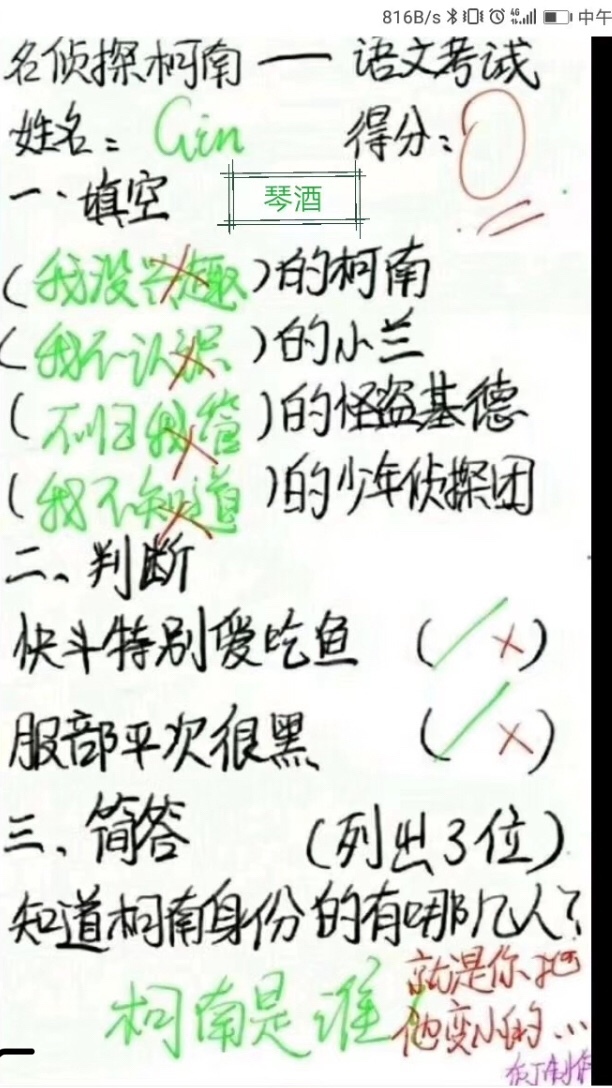 816B/s 4G 中午
名侦探柯南 — 语文考试
姓名：Gin 得分：0
一、填空 琴酒
(我没兴趣)的柯南
(我不认识)的小兰
(不归我管)的怪盗基德
(我不知道)的少年侦探团
二、判断
快斗特别爱吃鱼 (✓ ×)
服部平次很黑 (✓ ×)
三、简答 (列出3位)
知道柯南身份的有哪几人？
柯南是谁
就是你把
他变小的...